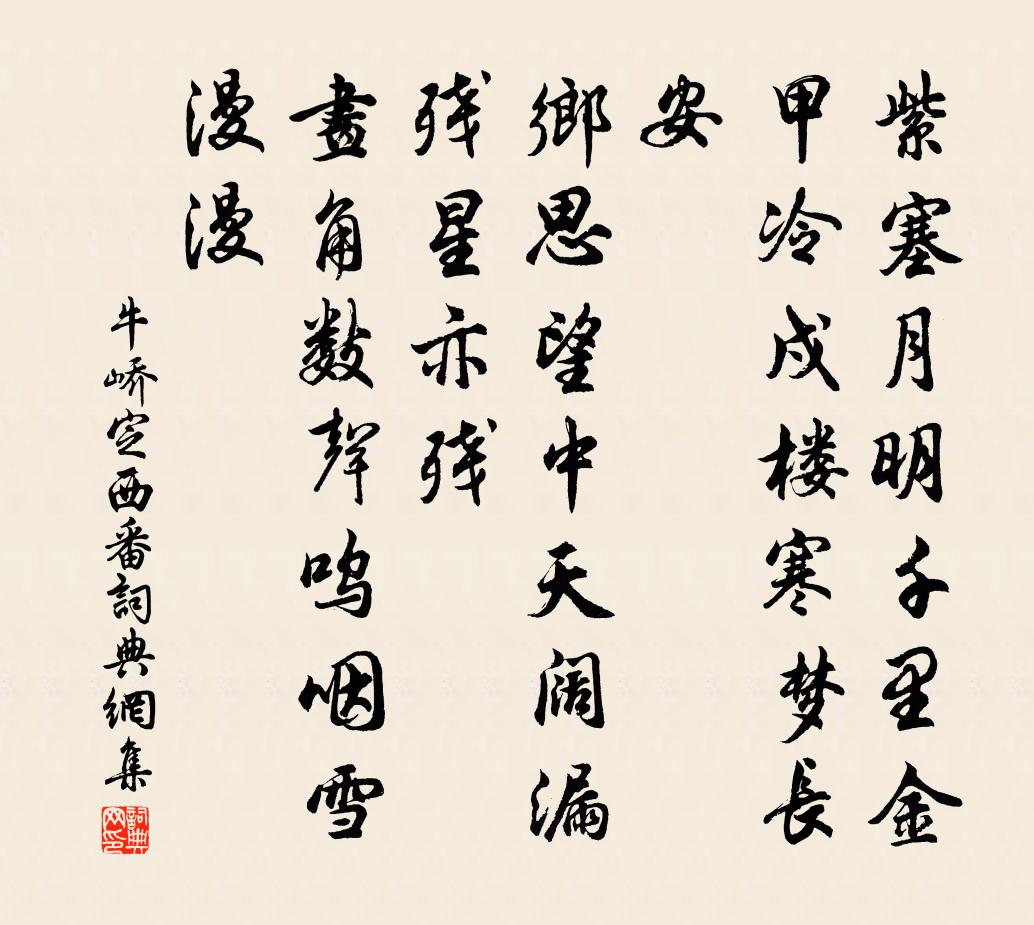 紫塞月明千里金
甲冷戍楼寒梦長
安
鄉思望中天阔漏
残星亦残
畫角数聲呜咽雪
漫漫
牛嶠定西番詞典網集
詞典网印